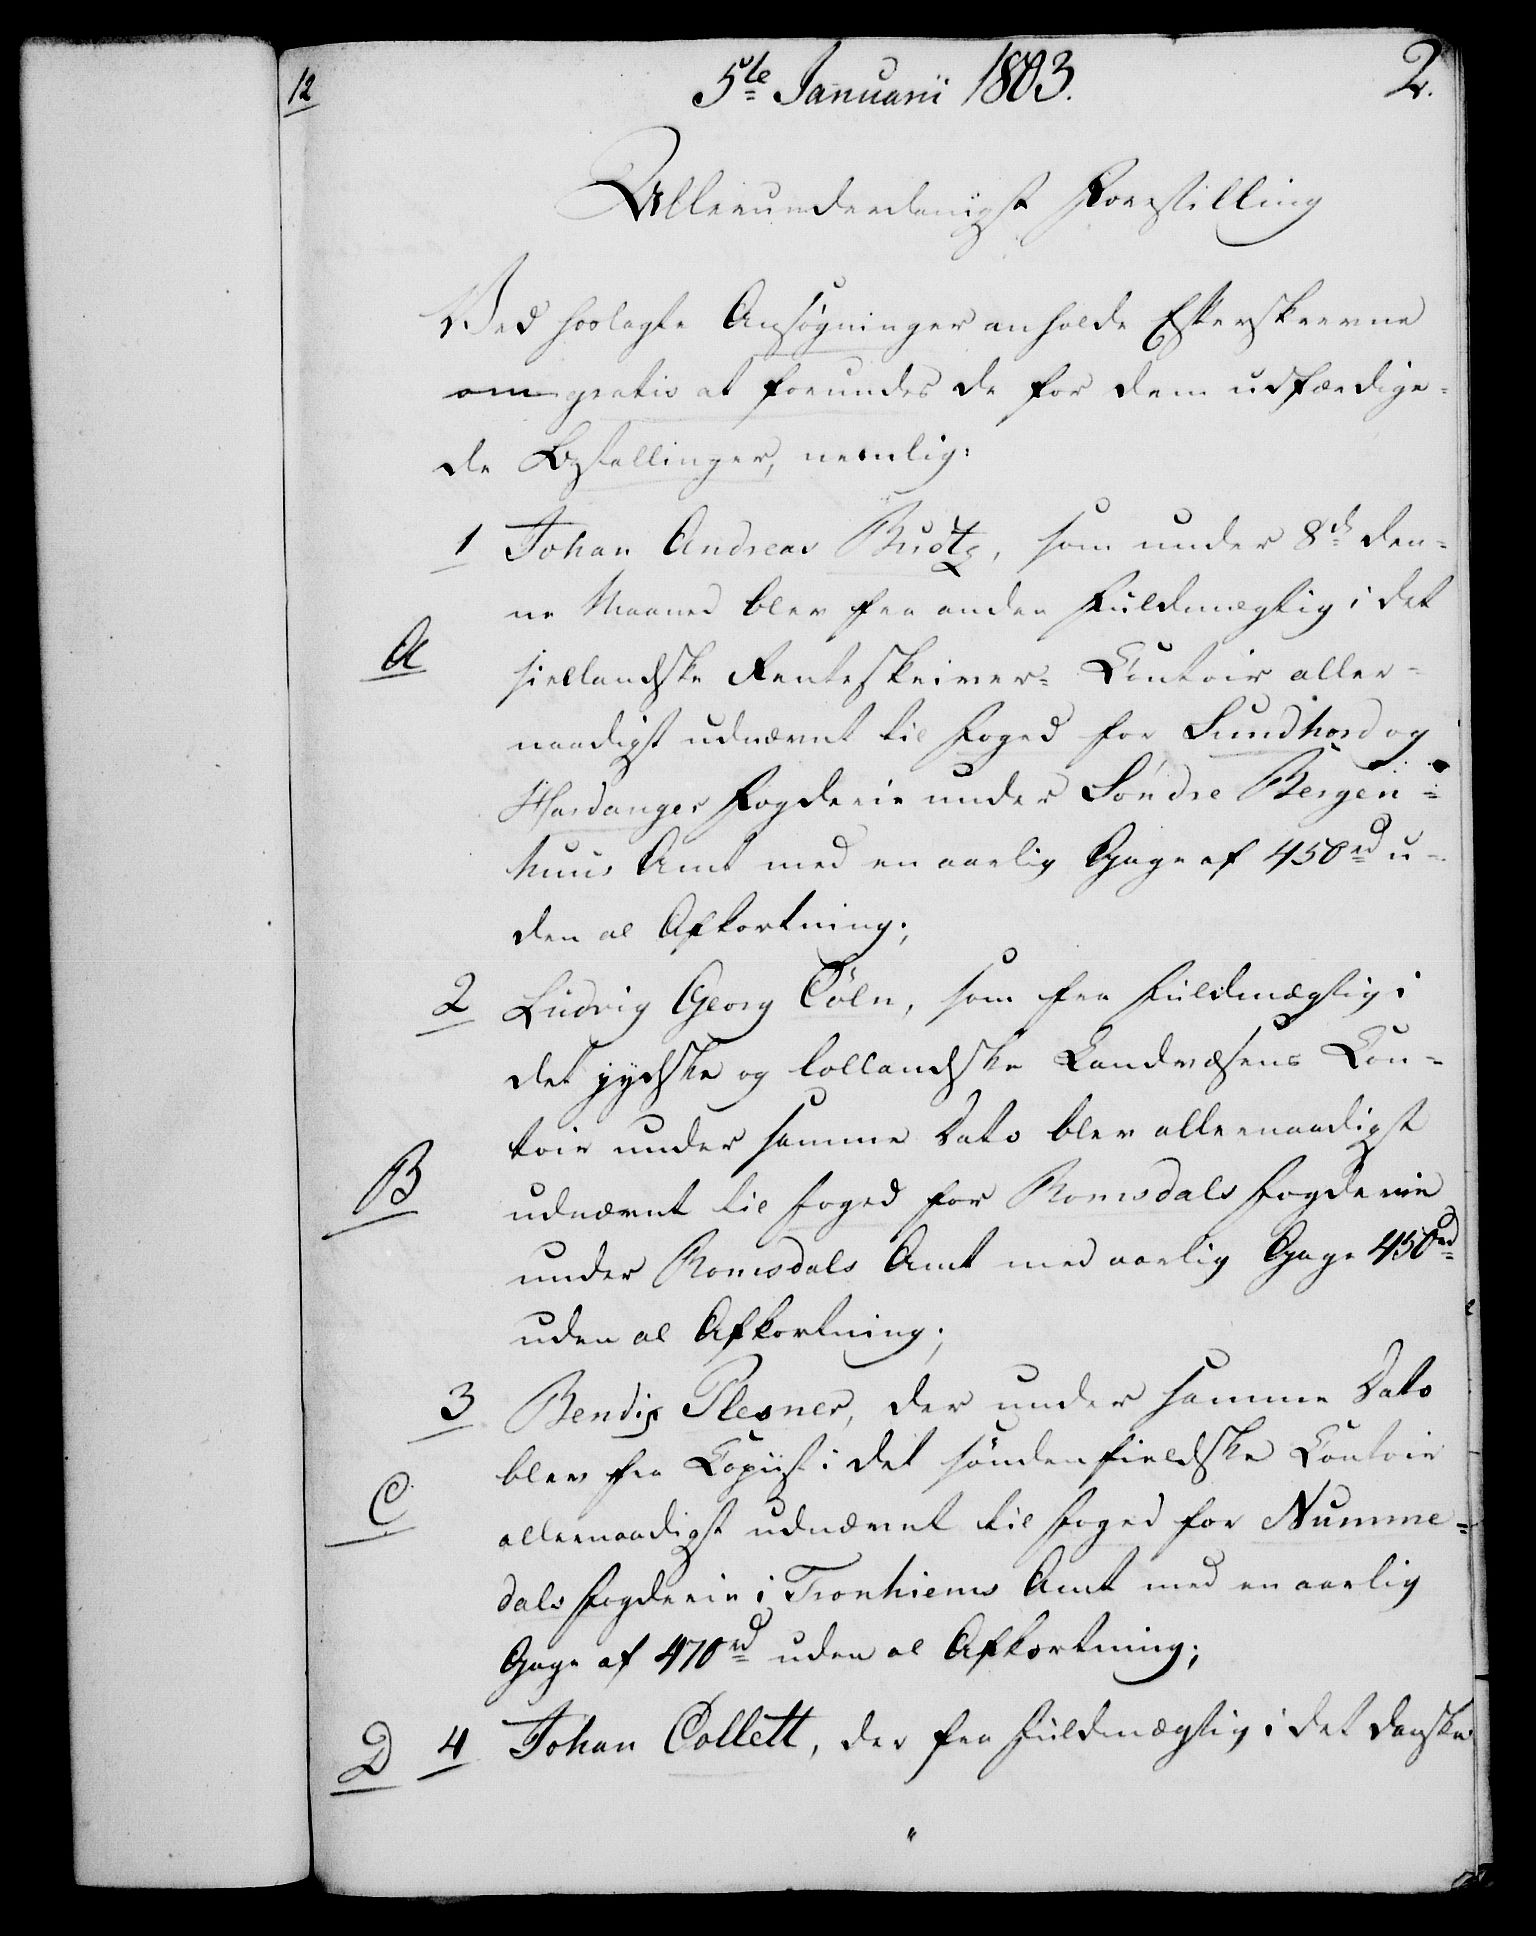 12
5te Januarii 1803.
2.
Allerunderdanigst Forestilling
Ved hoslagte Ansøgninger anholde Efterskrevne
om gratis at forundes de for dem udfærdige-
de Bestallinger, nemlig:
1 Johan Andreas Buøtz, som under 8de den-
ne Maaned blev fra anden Fuldmægtig i det
A
siellandske Renteskriver-Contoir aller-
naadigst udnævnt til Foged for Sundhord og
Hardanger Fogderie under Søndre Bergen-
huus Amt med en aarlig Gage af 450rd u-
den al Afkortning;
2 Ludvig Georg Cöln, som fra Fuldmægtig i
det jydske og lollandske Landvæsens Con-
toir under samme Dato blev allernaadigst
B
udnævnt til Foged for Romsdals Fogderie
under Romsdals Amt med aarlig Gage 450rd
uden al Afkortning;
3 Bendix Plesner, der under samme Dato
blev fra Copiist i det søndenfieldske Contoir
C
allernaadigst udnævnt til Foged for Numme-
dals Fogderie i Tronhiems Amt med en aarlig
Gage af 470rd uden al Afkortning;
D 4 Johan Collett, der fra Fuldmægtig i det danske